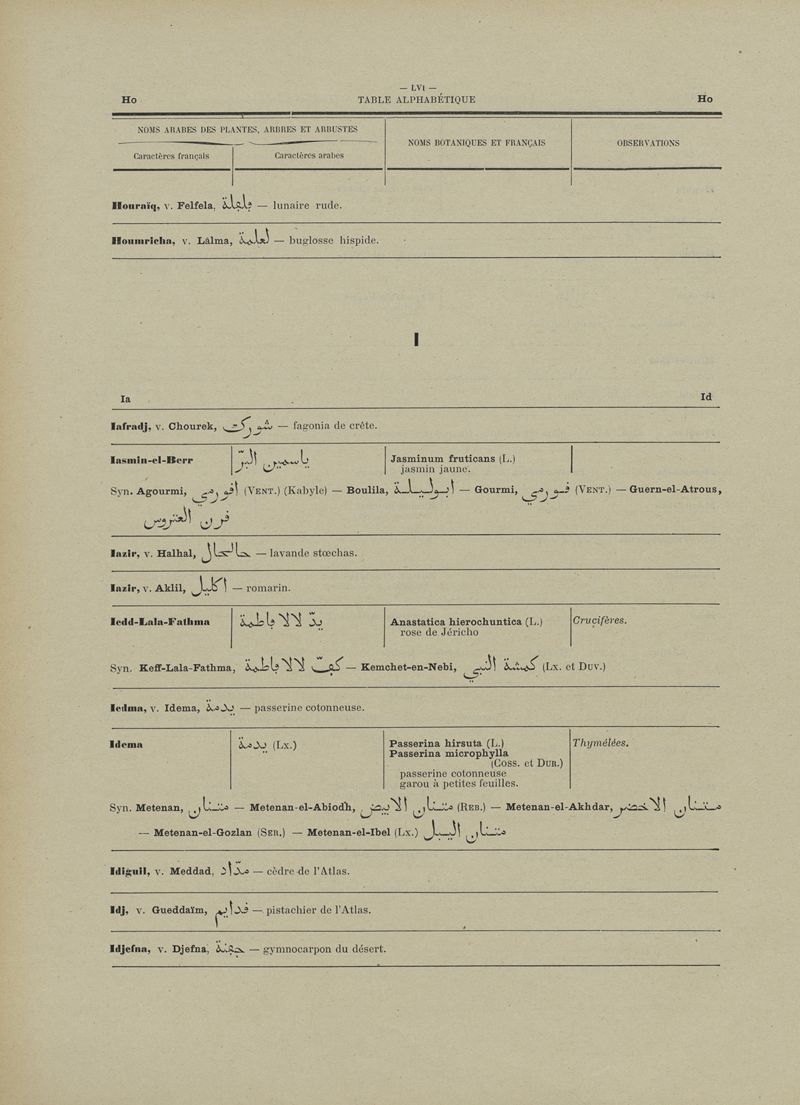 — LVI —
Ho TABLE ALPHABÉTIQUE Ho
NOMS ARABES DES PLANTES, ARBRES ET ARBUSTES
NOMS BOTANIQUES ET FRANÇAIS
OBSERVATIONS
Caractères français
Caractères arabes
Houraïq, v. Felfela, فلفلة — lunaire rude.
Houmricha, v. Lâlma, لعلمة — buglosse hispide.
I
Ia Id
Iafradj, v. Chourek, شورك — fagonia de crête.
Iasmin-el-Berr ياسمين البرّ Jasminum fruticans (L.)
jasmin jaune.
Syn. Agourmi, (VENT.) (Kabyle) — Boulila, — Gourmi, (VENT.) — Guern-el-Atrous,
قرن العتروس
Iazir, v. Halhal, حلحال — lavande stœchas.
Iazir, v. Aklil, اكليل — romarin.
Iedd-Lala-Fathma يدّ لالا فاطمة Anastatica hierochuntica (L.) Crucifères.
rose de Jéricho
Syn. Keff-Lala-Fathma, كفّ لالا فاطمة — Kemchet-en-Nebi, كمشة النبي (LX. et DUV.)
Iedma, v. Idema, يدمة — passerine cotonneuse.
Idema يدمة (LX.) Passerina hirsuta (L.) Thymélées.
Passerina microphylla
(Coss. et DUR.)
passerine cotonneuse
garou à petites feuilles.
Syn. Metenan, متنان — Metenan-el-Abiodh, متنان الابيض (REB.) — Metenan-el-Akhdar, متنان الاخضر
— Metenan-el-Gozlan (SER.) — Metenan-el-Ibel (LX.) متنان
Idiguil, v. Meddad, مدّاد — cèdre de l'Atlas.
Idj, v. Gueddaïm, — pistachier de l'Atlas.
Idjefna, v. Djefna, جفنة — gymnocarpon du désert.